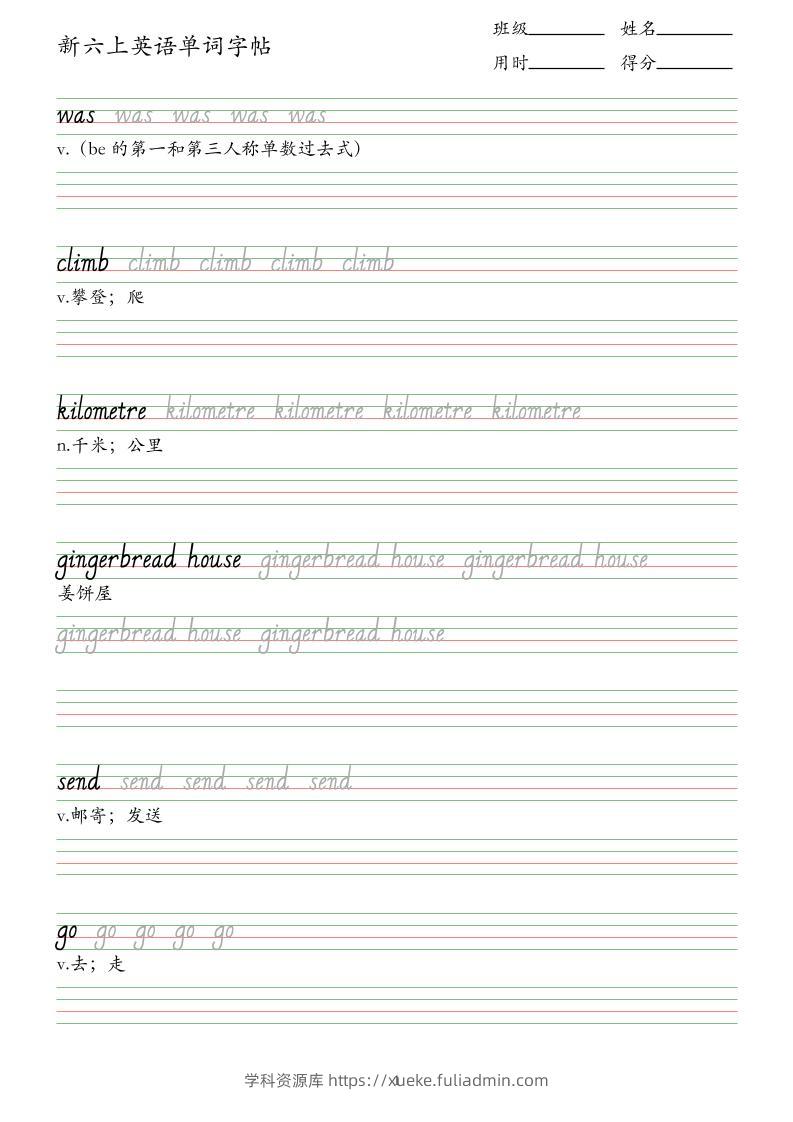 新六上英语单词字帖
班级 姓名
用时 得分
was was was was was
v.（be 的第一和第三人称单数过去式）
climb climb climb climb climb
v.攀登；爬
kilometre kilometre kilometre kilometre kilometre
n.千米；公里
gingerbread house gingerbread house gingerbread house
姜饼屋
gingerbread house gingerbread house
send send send send send
v.邮寄；发送
go go go go go
v.去；走
学科资源库 https://xueke.fuliadmin.com